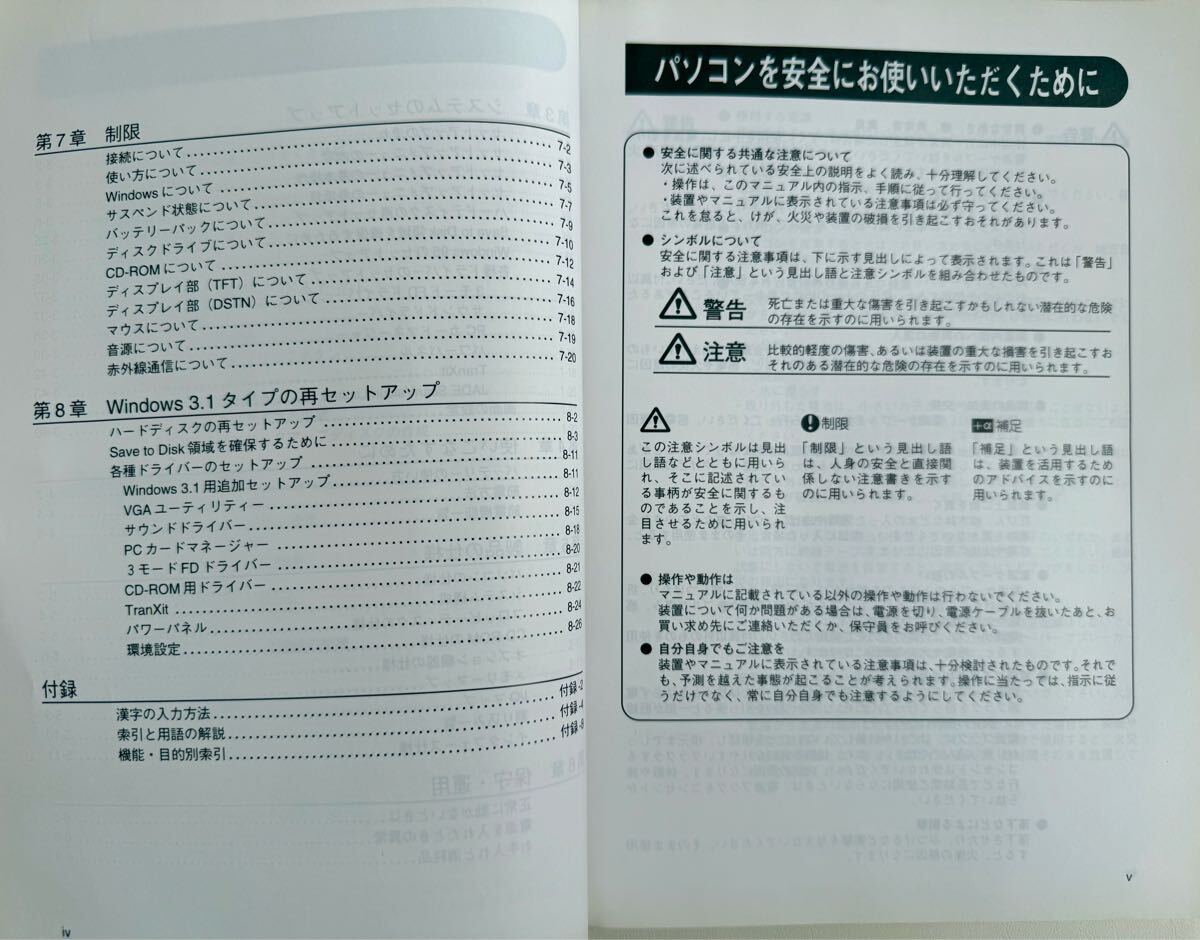 第7章 制限
接続について 7-2
使い方について 7-3
Windows について 7-5
サスペンド状態について 7-7
バッテリーパックについて 7-9
ディスクドライブについて 7-10
CD-ROM について 7-12
ディスプレイ部（TFT）について 7-14
ディスプレイ部（DSTN）について 7-16
マウスについて 7-18
音源について 7-19
赤外線通信について 7-20
第8章 Windows 3.1 タイプの再セットアップ
ハードディスクの再セットアップ 8-2
Save to Disk 領域を確保するために 8-3
各種ドライバーのセットアップ 8-11
Windows 3.1 用追加セットアップ 8-11
VGA ユーティリティー 8-12
サウンドドライバー 8-15
PC カードマネージャー 8-18
3 モード FD ドライバー 8-20
CD-ROM 用ドライバー 8-21
TranXit 8-22
パワーパネル 8-24
環境設定 8-26
付録
漢字の入力方法 付録-2
索引と用語の解説 付録-4
機能・目的別索引 付録-8
iv
パソコンを安全にお使いいただくために
● 安全に関する共通な注意について
次に述べられている安全上の説明をよく読み、十分理解してください。
・操作は、このマニュアル内の指示、手順に従って行ってください。
・装置やマニュアルに表示されている注意事項は必ず守ってください。
これを怠ると、けが、火災や装置の破損を引き起こすおそれがあります。
● シンボルについて
安全に関する注意事項は、下に示す見出しによって表示されます。これは「警告」
および「注意」という見出し語と注意シンボルを組み合わせたものです。
警告 死亡または重大な傷害を引き起こすかもしれない潜在的な危険
の存在を示すのに用いられます。
注意 比較的軽度の傷害、あるいは装置の重大な損害を引き起こすお
それのある潜在的な危険の存在を示すのに用いられます。
この注意シンボルは見出
し語などとともに用いら
れ、そこに記述されてい
る事柄が安全に関するも
のであることを示し、注
目させるために用いられ
ます。
制限
「制限」という見出し語
は、人身の安全と直接関
係しない注意書きを示す
のに用いられます。
+α 補足
「補足」という見出し語
は、装置を活用するため
のアドバイスを示すのに
用いられます。
● 操作や動作は
マニュアルに記載されている以外の操作や動作は行わないでください。
装置について何か問題がある場合は、電源を切り、電源ケーブルを抜いたあと、お
買い求め先にご連絡いただくか、保守員をお呼びください。
● 自分自身でもご注意を
装置やマニュアルに表示されている注意事項は、十分検討されたものです。それで
も、予測を越えた事態が起こることが考えられます。操作に当たっては、指示に従
うだけでなく、常に自分自身でも注意するようにしてください。
v